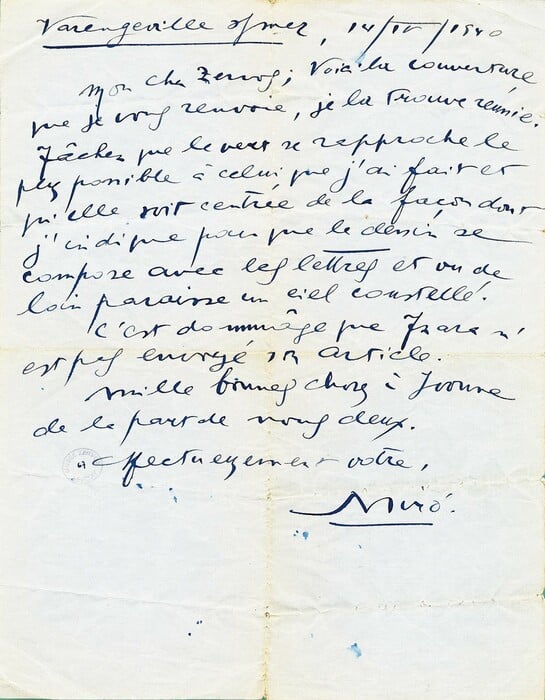 Varengeville s/mer, 14/IV/1940
Mon cher Zervos; Voici la couverture
que je vous renvoie, je la trouve réussie.
Tâchez que le vert se rapproche le
plus possible à celui que j'ai fait et
qu'elle soit centrée de la façon dont
j'indique pour que le dessin se
compose avec les lettres et vu de
loin paraisse un ciel constellé.
C'est dommâge que Tzara n'
est pas envoyé son article.
Mille bonnes choses à Yvonne
de la part de nous deux.
affectueusement votre,
Miró.